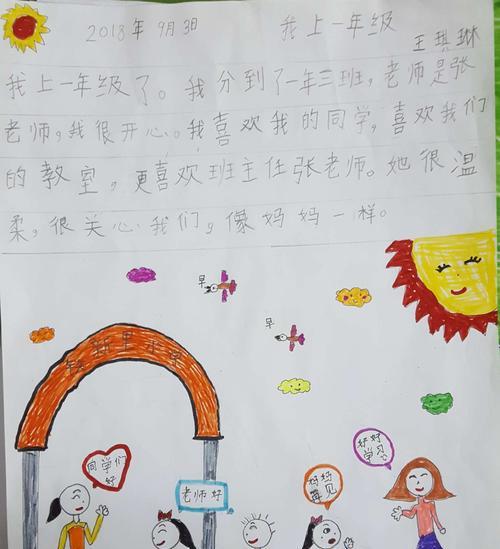 2018年9月3日 我上一年级
王琪琳
我上一年级了。我分到了一年三班,老师是张
老师,我很开心。我喜欢我的同学,喜欢我们
的教室,更喜欢班主任张老师。她很温
柔,很关心我们,像妈妈一样。
早
早
同学们
好
老师好
妈妈
再见
好好
学习